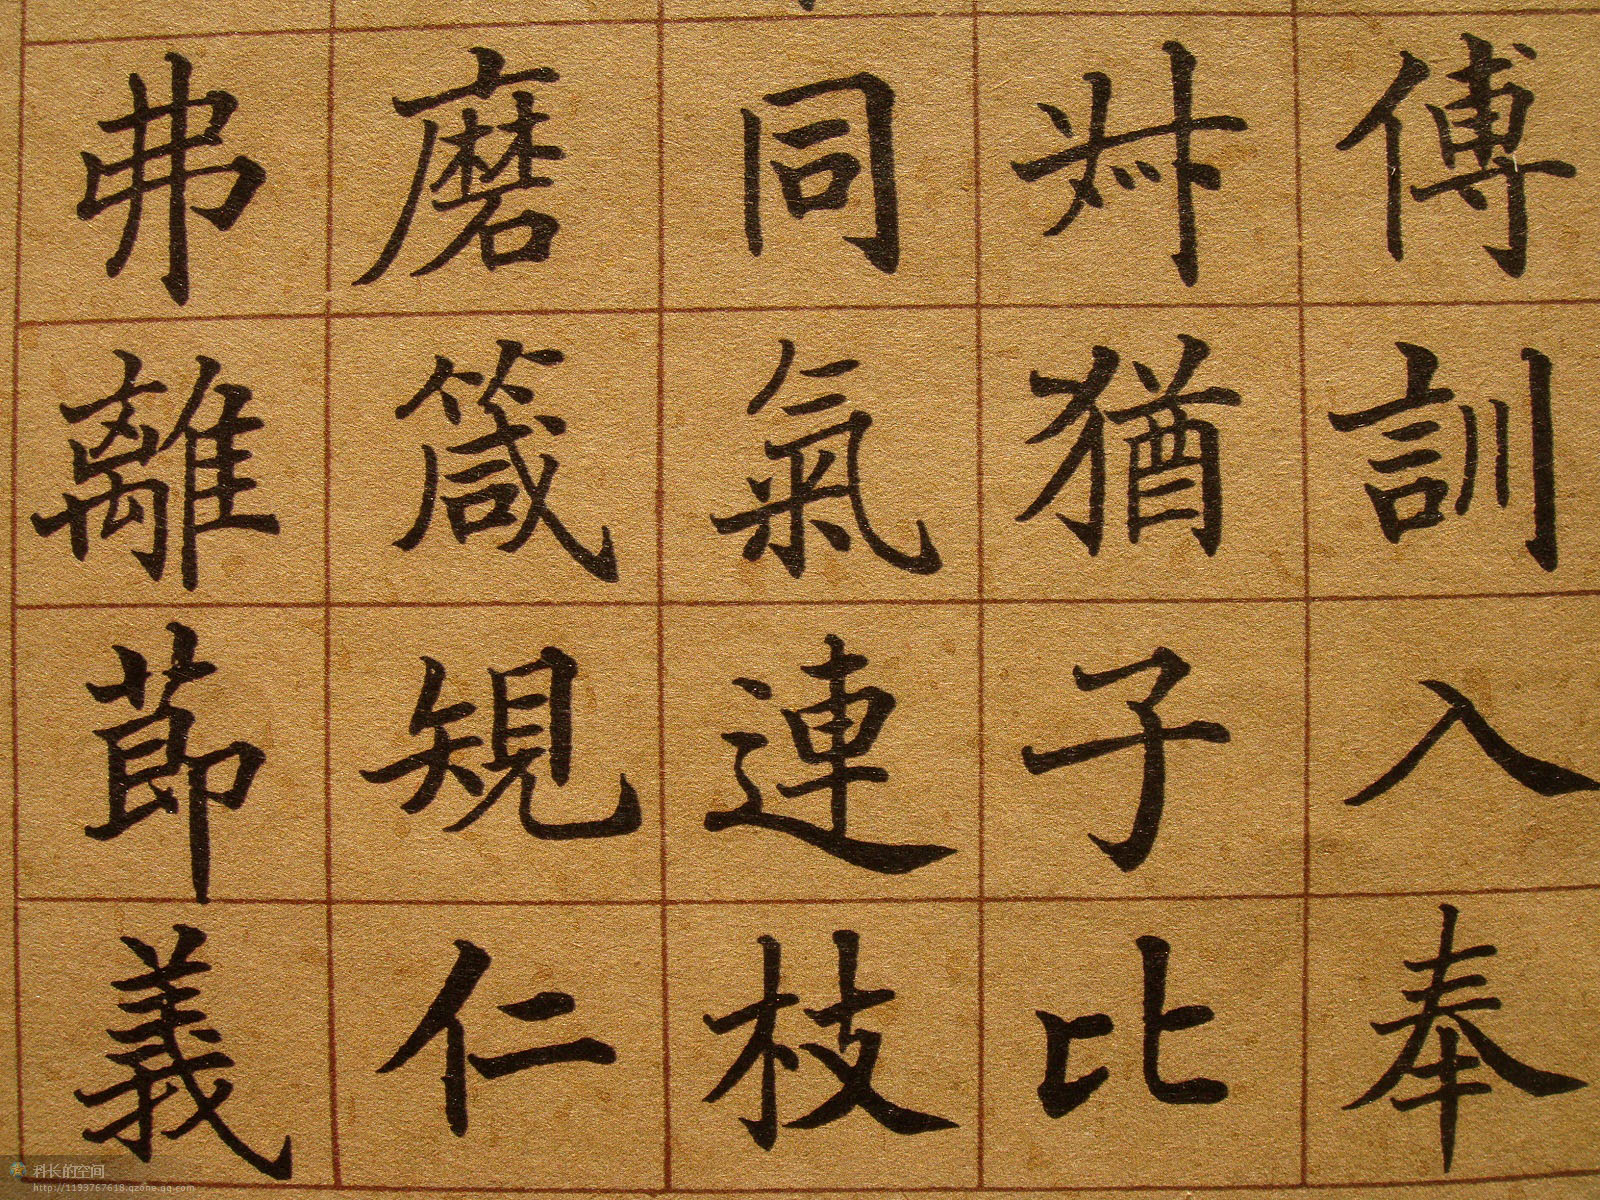 傅訓入奉
叔猶子比
同氣連枝
磨箴規仁
弗離節義
科长的空间
http://1193767618.qzone.qq.com